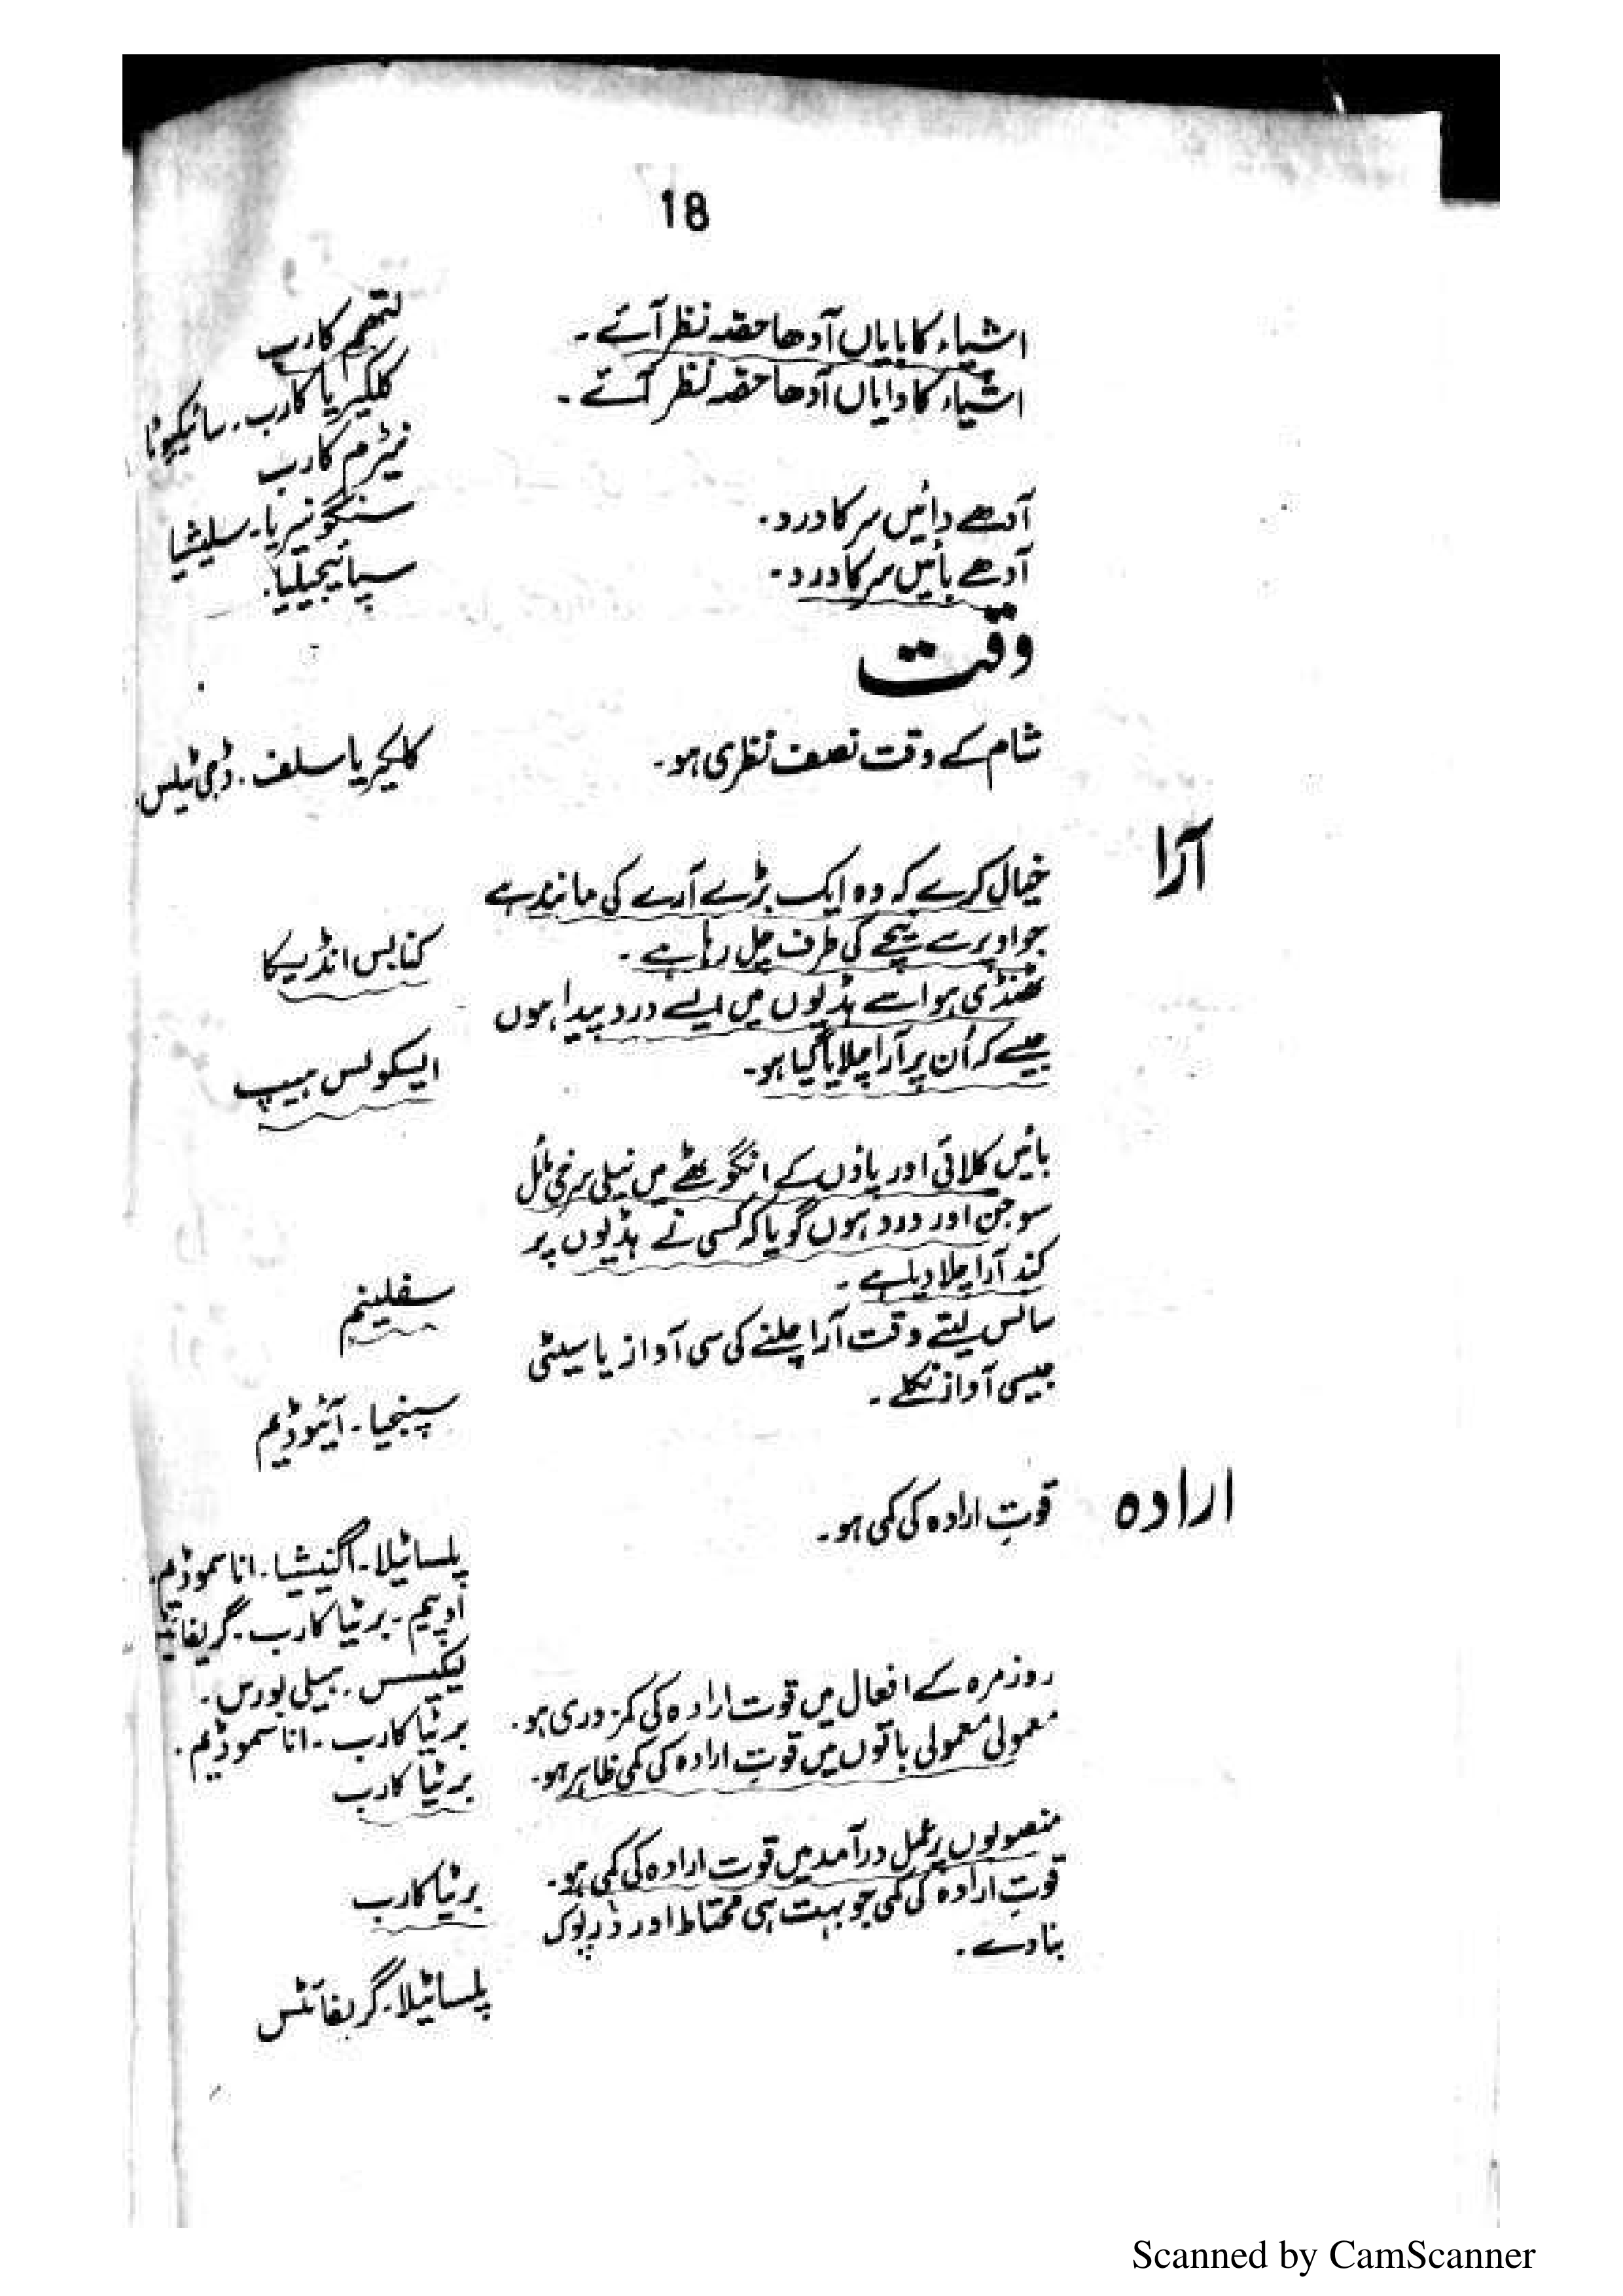 18
اشیاء کا بایاں آدھا حصہ نظر آئے۔
لتھیم کارب
اشیاء کا دایاں آدھا حصہ نظر آئے۔
کلکیریا کارب۔ سائیکیوٹا
نیٹرم کارب
آدھے دائیں سر کا درد۔
سنگونیریا۔ سلیشیا
آدھے بائیں سر کا درد۔
سپائیجیلیا۔
وقت
شام کے وقت نصف نظری ہو۔
کلیکریا سلف۔ ڈجی ٹیلس
آرا
خیال کرے کہ وہ ایک بڑے آرے کی مانند ہے
جو اوپر سے نیچے کی طرف چل رہا ہے۔
کنابس انڈیکا
ٹھنڈی ہوا سے ہڈیوں میں ایسے درد پیدا ہوں
جیسے کہ اُن پر آرا چلایا گیا ہو۔
ایسکولس ہیپ
بائیں کلائی اور پاؤں کے انگوٹھے میں نیلی سرخی مائل
سوجن اور درد ہوں گویا کہ کسی نے ہڈیوں پر
کند آرا چلا دیا ہے۔
سفلینم
سانس لیتے وقت آرا چلنے کی سی آواز یا سیٹی
جیسی آواز نکلے۔
سپنجیا۔ آئیوڈیم
ارادہ
قوتِ ارادہ کی کمی ہو۔
پلساٹیلا۔ اگنیشیا۔ اناسموڈیم۔
اوپیم۔ برٹیا کارب۔ گریفائٹس
لیکیسس۔ ہیلی بورس۔
روزمرہ کے افعال میں قوت ارادہ کی کمزوری ہو۔
برٹیا کارب۔ اناسموڈیم۔
معمولی معمولی باتوں میں قوتِ ارادہ کی کمی ظاہر ہو۔
برٹیا کارب
منصوبوں پر عمل درآمد میں قوت ارادہ کی کمی ہو۔
برٹیا کارب
قوتِ ارادہ کی کمی جو بہت ہی محتاط اور ڈرپوک
بنا دے۔
پلساٹیلا۔ گریفائٹس
Scanned by CamScanner